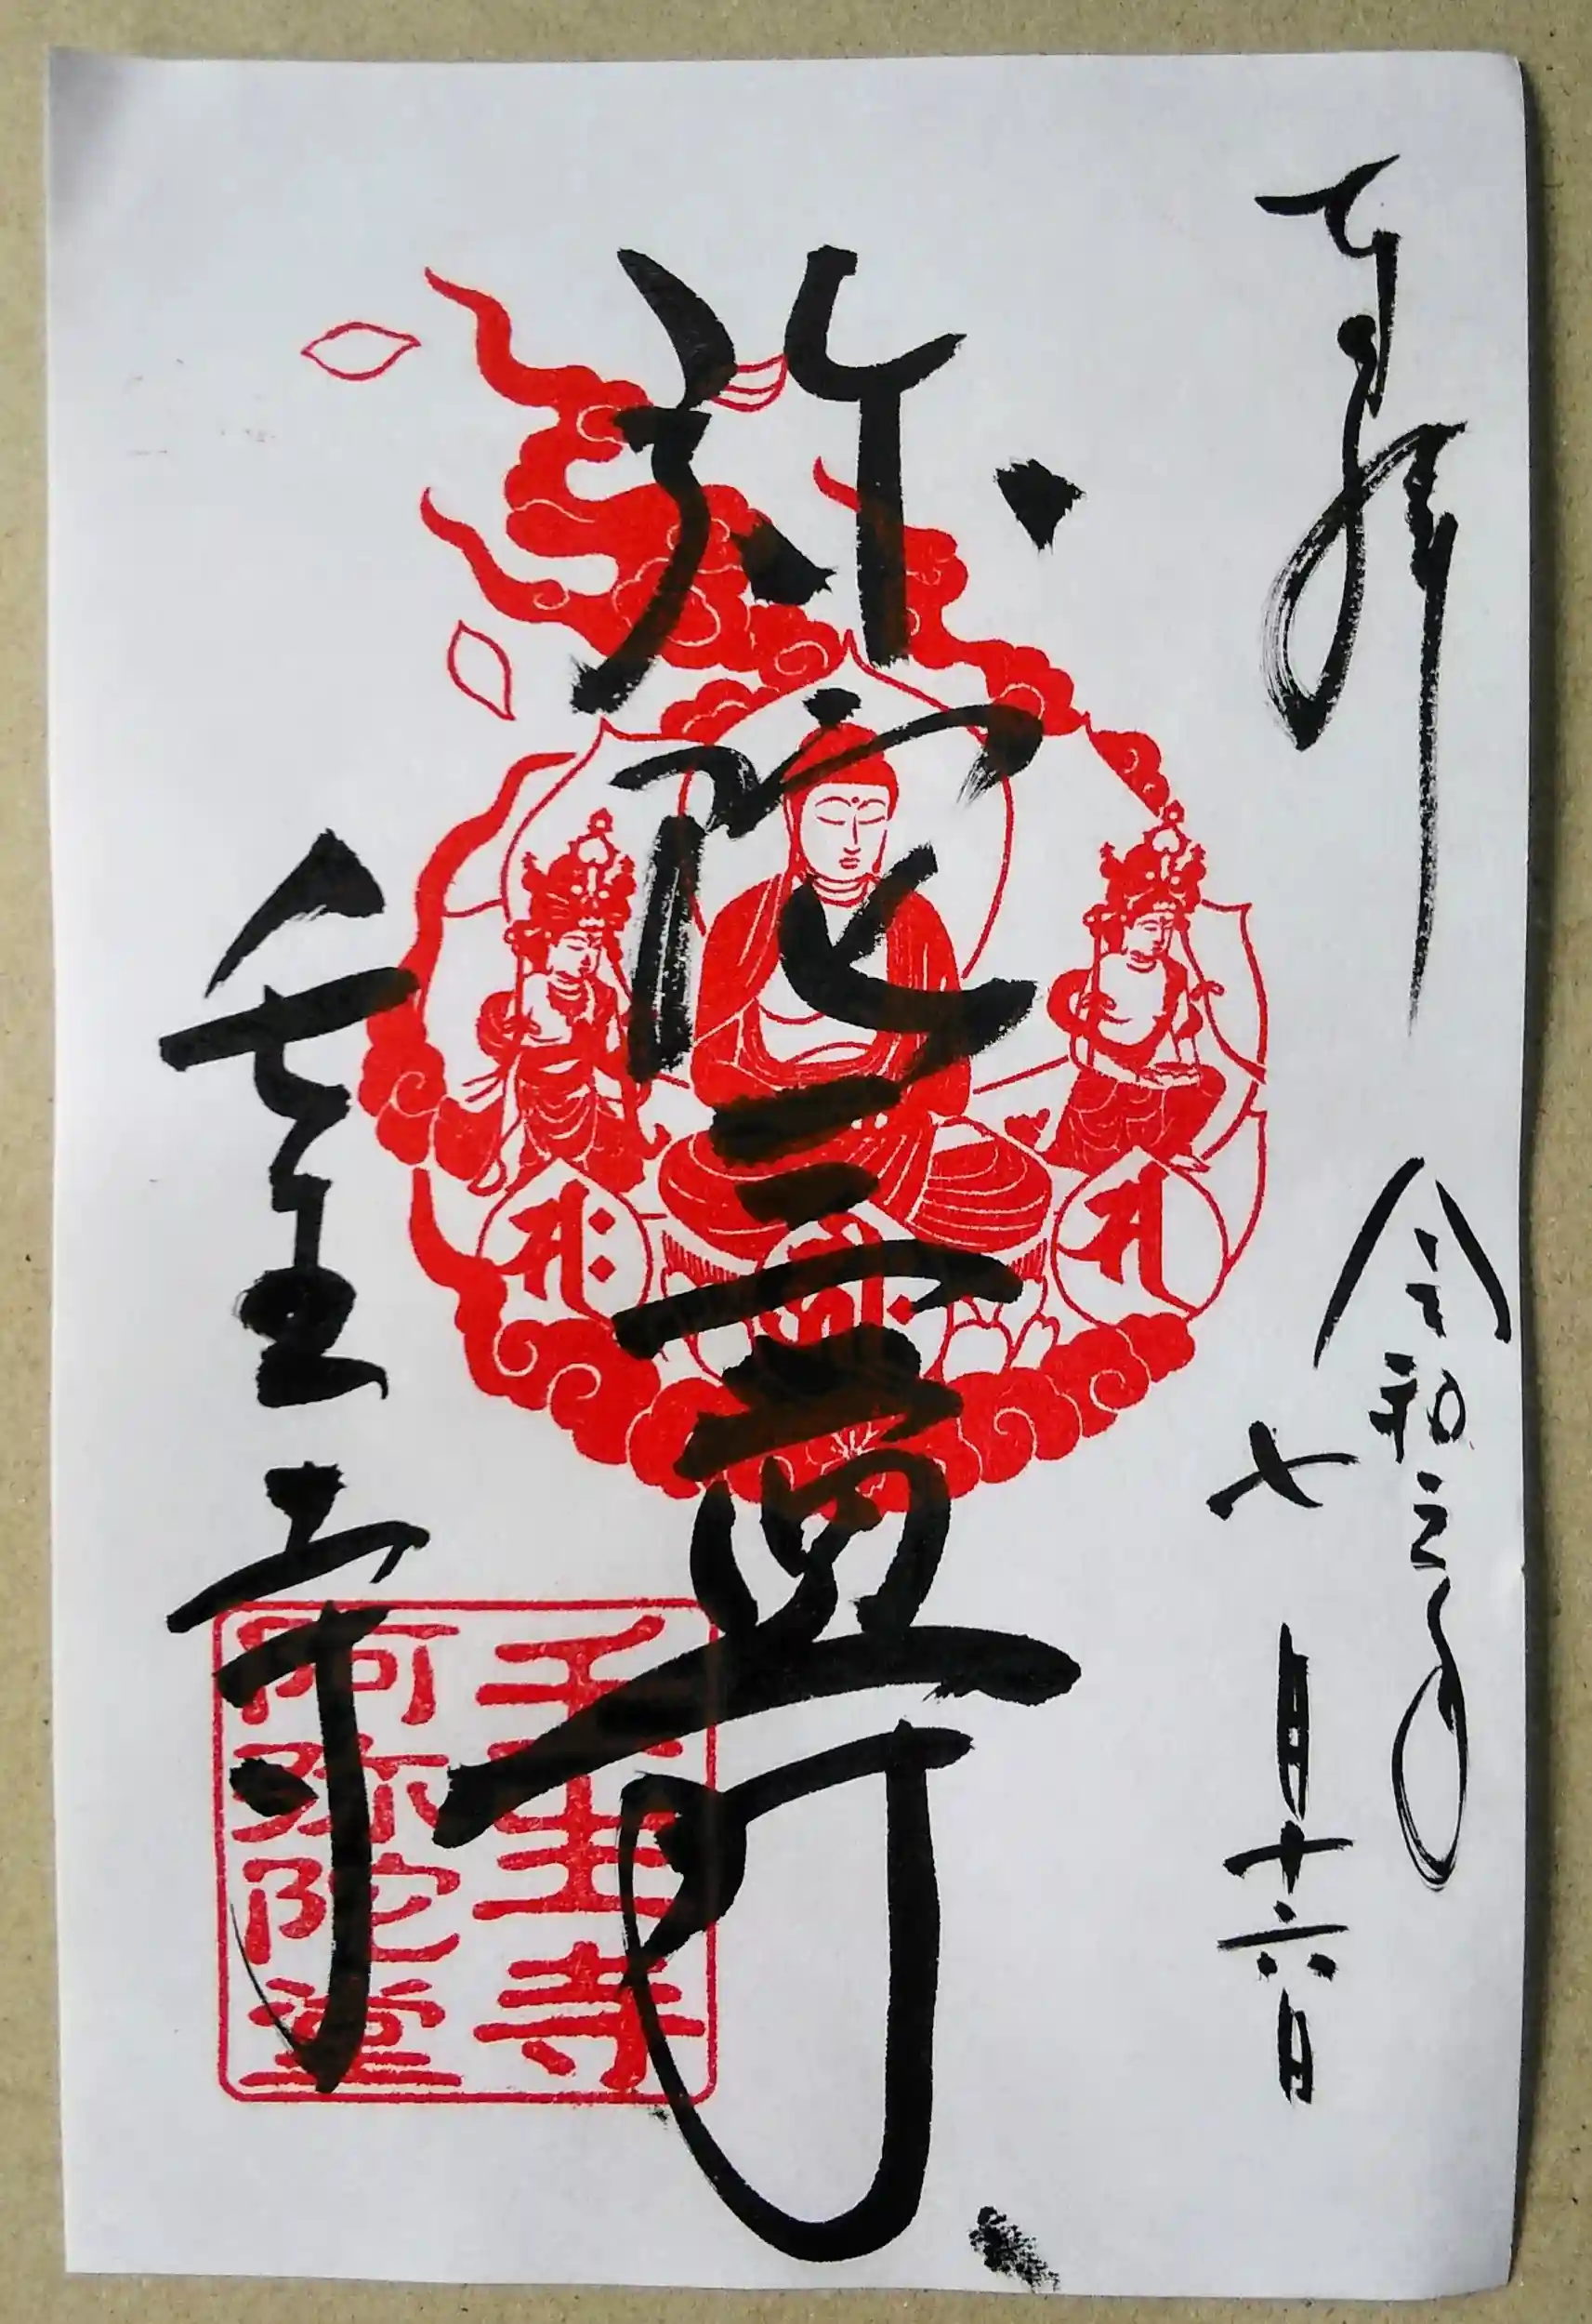 奉拝
令和元年
七月十六日
弥陀三尊
壬生寺
壬生寺
阿弥陀堂